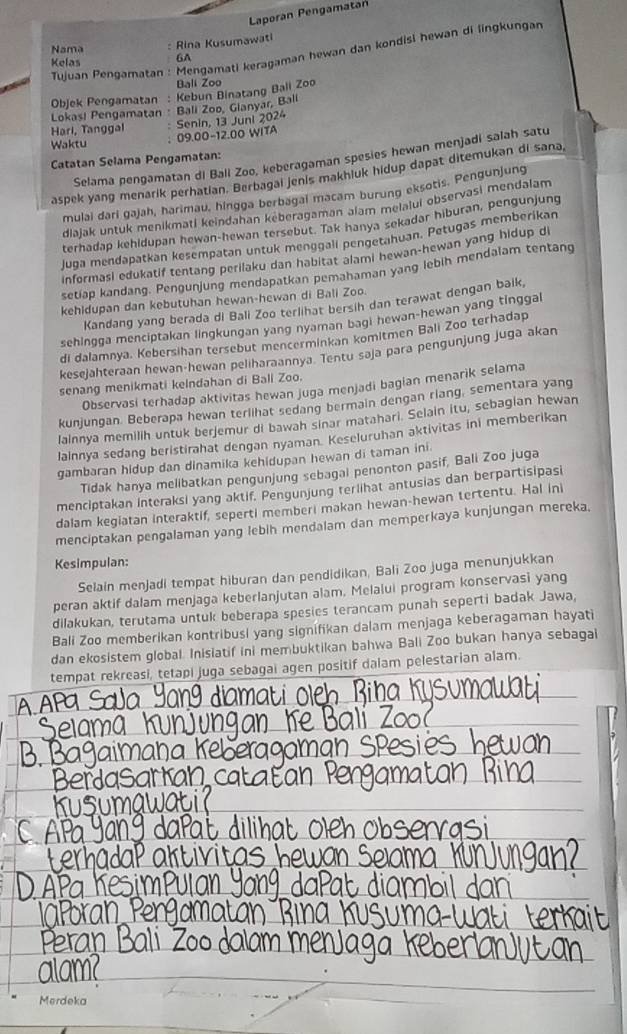 Laporan Pengamatan
Nama : Rina Kusumawati
Kelas : 6A
Tujuan Pengamatan : Mengamati keragaman hewan dan kondisi hewan di lingkungan
Bali Zoo
Objek Pengamatan : Kebun Binatang Bali Zoo
Lokasi Pengamatan : Bali Zoo, Gianyar, Bali
Hari, Tanggal : Senin, 13 Juni 2024
Waktu : 09.00-12.00 WITA
Catatan Selama Pengamatan:
Selama pengamatan di Bali Zoo, keberagaman spesies hewan menjadi salah satu
aspek yang menarik perhatian. Berbagai jenis makhluk hidup dapat ditemukan di sana,
mulai dari gajah, harimau, hingga berbagai macam burung eksotis. Pengunjung
diajak untuk menikmati keindahan keberagaman alam melalui observasi mendalam
terhadap kehidupan hewan-hewan tersebut. Tak hanya sekadar hiburan, pengunjung
juga mendapatkan kesempatan untuk menggali pengetahuan. Petugas memberikan
informasi edukatif tentang perilaku dan habitat alami hewan-hewan yang hidup di
setiap kandang. Pengunjung mendapatkan pemahaman yang lebih mendalam tentang
kehidupan dan kebutuhan hewan-hewan di Bali Zoo.
Kandang yang berada di Bali Zoo terlihat bersih dan terawat dengan baik,
sehingga menciptakan lingkungan yang nyaman bagi hewan-hewan yang tinggal
di dalamnya. Kebersihan tersebut mencerminkan komitmen Bali Zoo terhadap
kesejahteraan hewan-hewan peliharaannya. Tentu saja para pengunjung juga akan
senang menikmati keindahan di Bali Zoo.
Observasi terhadap aktivitas hewan juga menjadi bagian menarik selama
kunjungan. Beberapa hewan terlihat sedang bermain dengan riang, sementara yang
lainnya memilih untuk berjemur di bawah sinar matahari. Selain itu, sebagian hewan
lainnya sedang beristirahat dengan nyaman. Keseluruhan aktivitas ini memberikan
gambaran hidup dan dinamika kehidupan hewan di taman ini.
Tidak hanya melibatkan pengunjung sebagai penonton pasif, Bali Zoo juga
menciptakan interaksi yang aktif. Pengunjung terlihat antusias dan berpartisipasi
dalam kegiatan interaktif, seperti memberi makan hewan-hewan tertentu. Hal ini
menciptakan pengalaman yang lebih mendalam dan memperkaya kunjungan mereka.
Kesimpulan:
Selain menjadi tempat hiburan dan pendidikan, Bali Zoo juga menunjukkan
peran aktif dalam menjaga keberlanjutan alam. Melalui program konservasi yang
dilakukan, terutama untuk beberapa spesies terancam punah seperti badak Jawa,
Bali Zoo memberikan kontribusi yang signifikan dalam menjaga keberagaman hayati
dan ekosistem global. Inisiatif ini membuktikan bahwa Bali Zoo bukan hanya sebagai
tempat rekreasi, tetapi juga sebagai agen positif dalam pelestarian alam.
A. Apa saja yang diamati oleh Rina Kusumawati
Selama kunjungan ke Bali Zoo?
B. Bagaimana Keberagaman spesies hewan
Berdasarkan catatan Pengamatan Rina
Kusumawati?
C. Apa yang dapat dilihat oleh observasi
terhadap aktivitas hewan selama kunjungan?
D. Apa Kesimpulan yang dapat diambil dari
laporan Pengamatan Rina Kusuma-wati terkait
Peran Bali Zoo dalam menjaga keberlanjutan
alam?
Merdeka